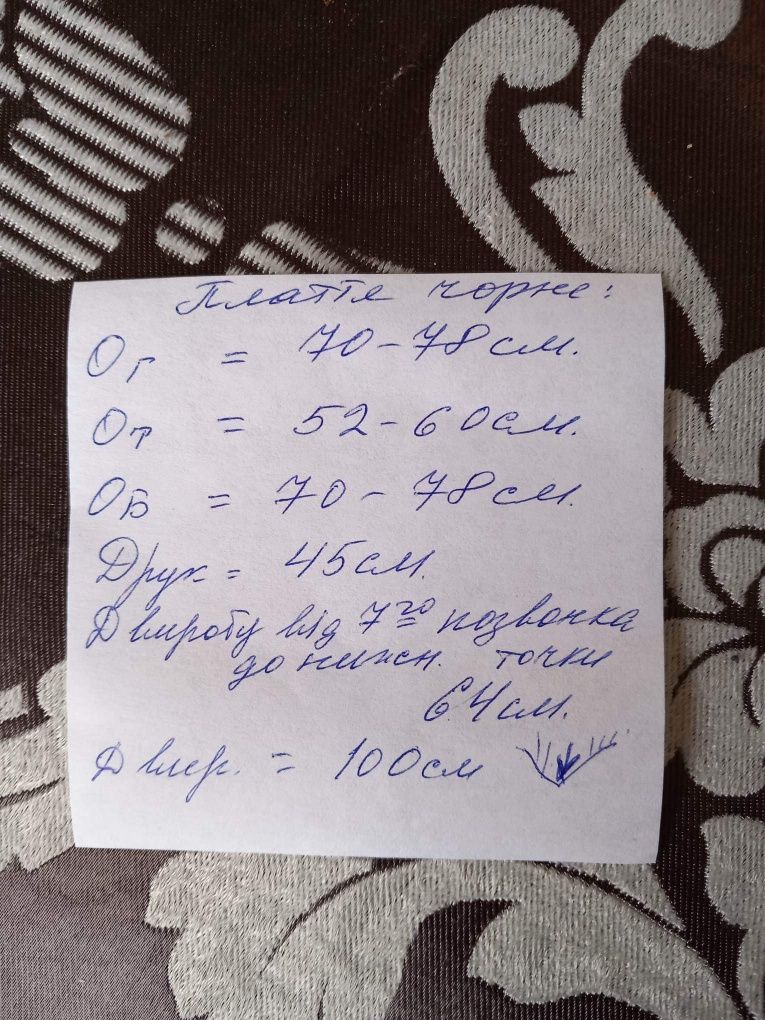 Плаття чорне:
Ог = 70-78см.
От = 52-60см.
Об = 70-78см.
Друк = 45см.
Двиробу від 7го позвонка
до нижн. точки
64см.
Д вир. = 100см